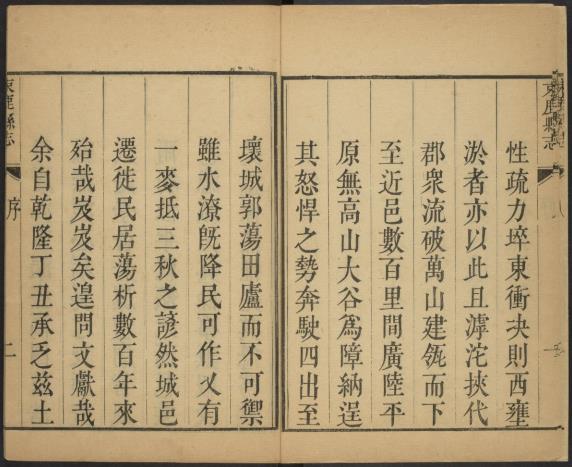 性疏力埣東衝決則西壅
淤者亦以此且滹沱挾代
郡衆流破萬山建瓴而下
至近邑數百里間廣陸平
原無高山大谷爲障納逞
其怒悍之勢奔駛四出至
壞城郭蕩田廬而不可禦
雖水潦旣降民可作乂有
一麥抵三秋之諺然城邑
遷徙民居蕩析數百年來
殆哉岌岌矣遑問文獻哉
余自乾隆丁丑承乏兹土
束鹿縣志 序 二